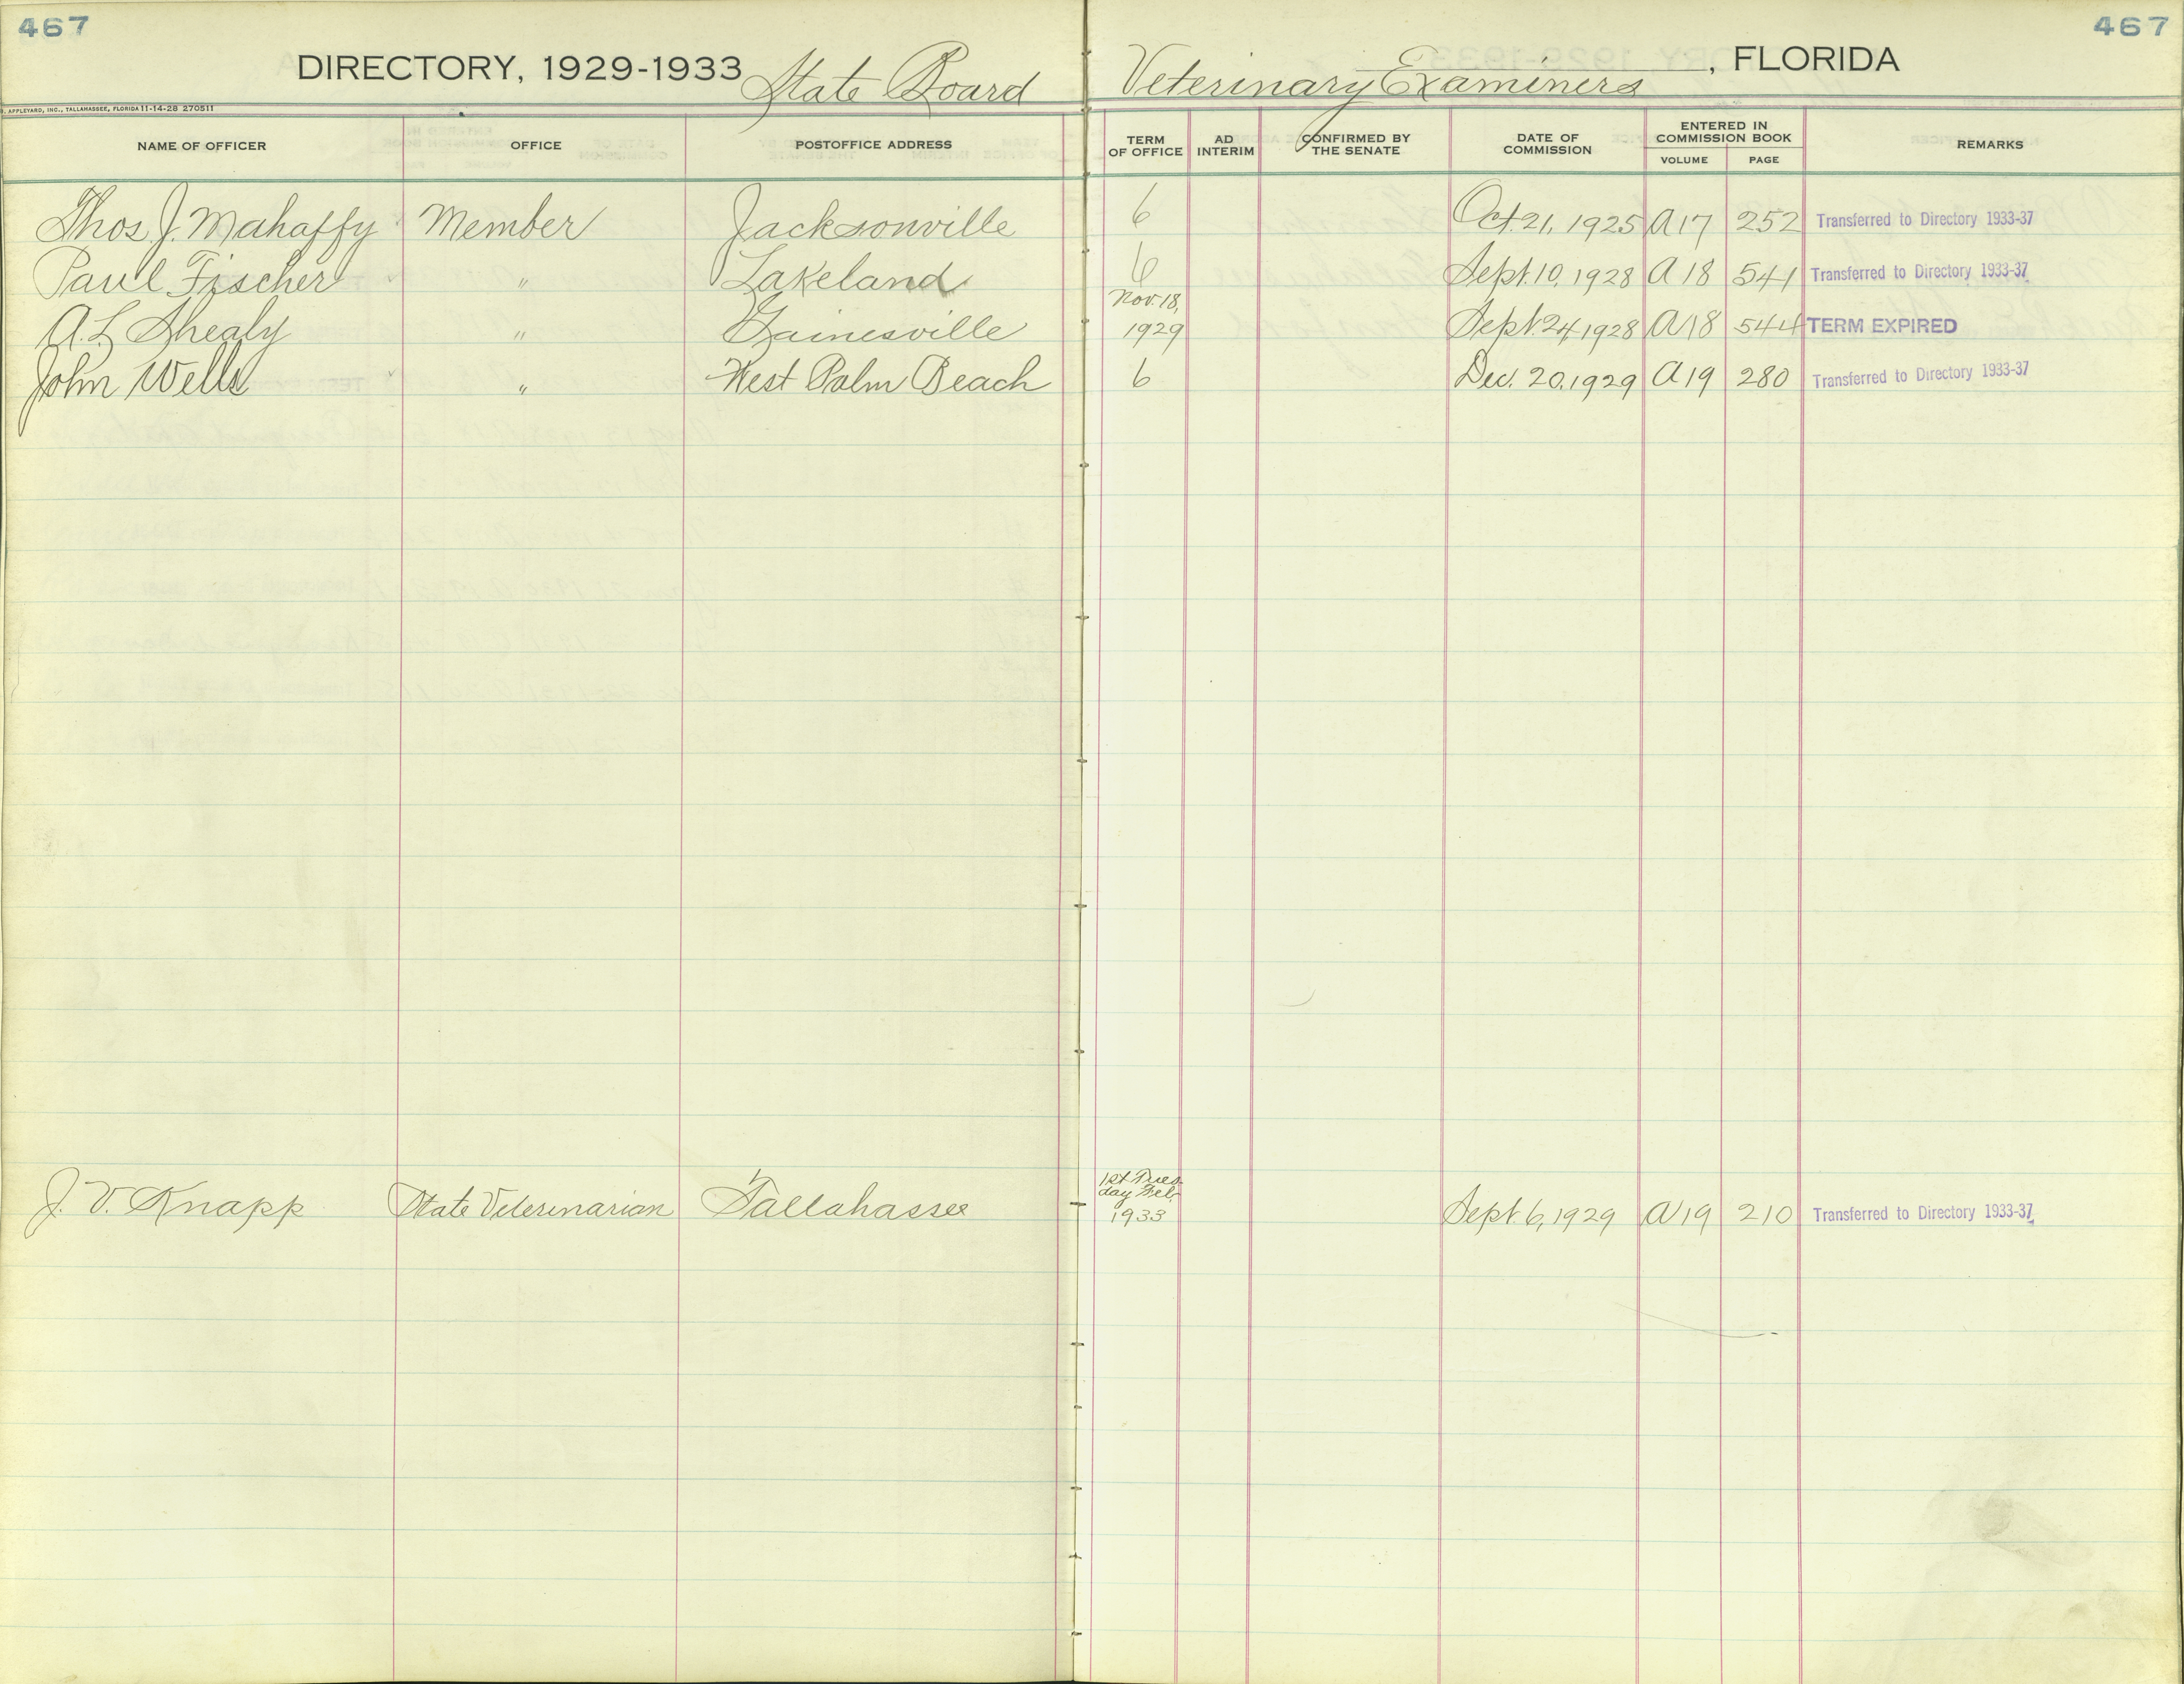 467 467
DIRECTORY, 1929-1933 State Board Veterinary Examiners, FLORIDA
APPLEYARD, INC., TALLAHASSEE, FLORIDA 11-14-28 270511
NAME OF OFFICER OFFICE POSTOFFICE ADDRESS TERM OF OFFICE AD INTERIM CONFIRMED BY THE SENATE DATE OF COMMISSION ENTERED IN COMMISSION BOOK VOLUME PAGE REMARKS
Thos J. Mahaffy Member Jacksonville 6 Oct. 21, 1925 A 17 252 Transferred to Directory 1933-37
Paul Fischer " Lakeland 6 Sept. 10, 1928 A 18 541 Transferred to Directory 1933-37
A. L. Shealy " Gainesville Nov. 18, 1929 Sept. 24, 1928 A 18 544 TERM EXPIRED
John Wells " West Palm Beach 6 Dec. 20, 1929 A 19 280 Transferred to Directory 1933-37
J. V. Knapp State Veterinarian Tallahassee 1st Tues day Feb. 1933 Sept. 6, 1929 A 19 210 Transferred to Directory 1933-37